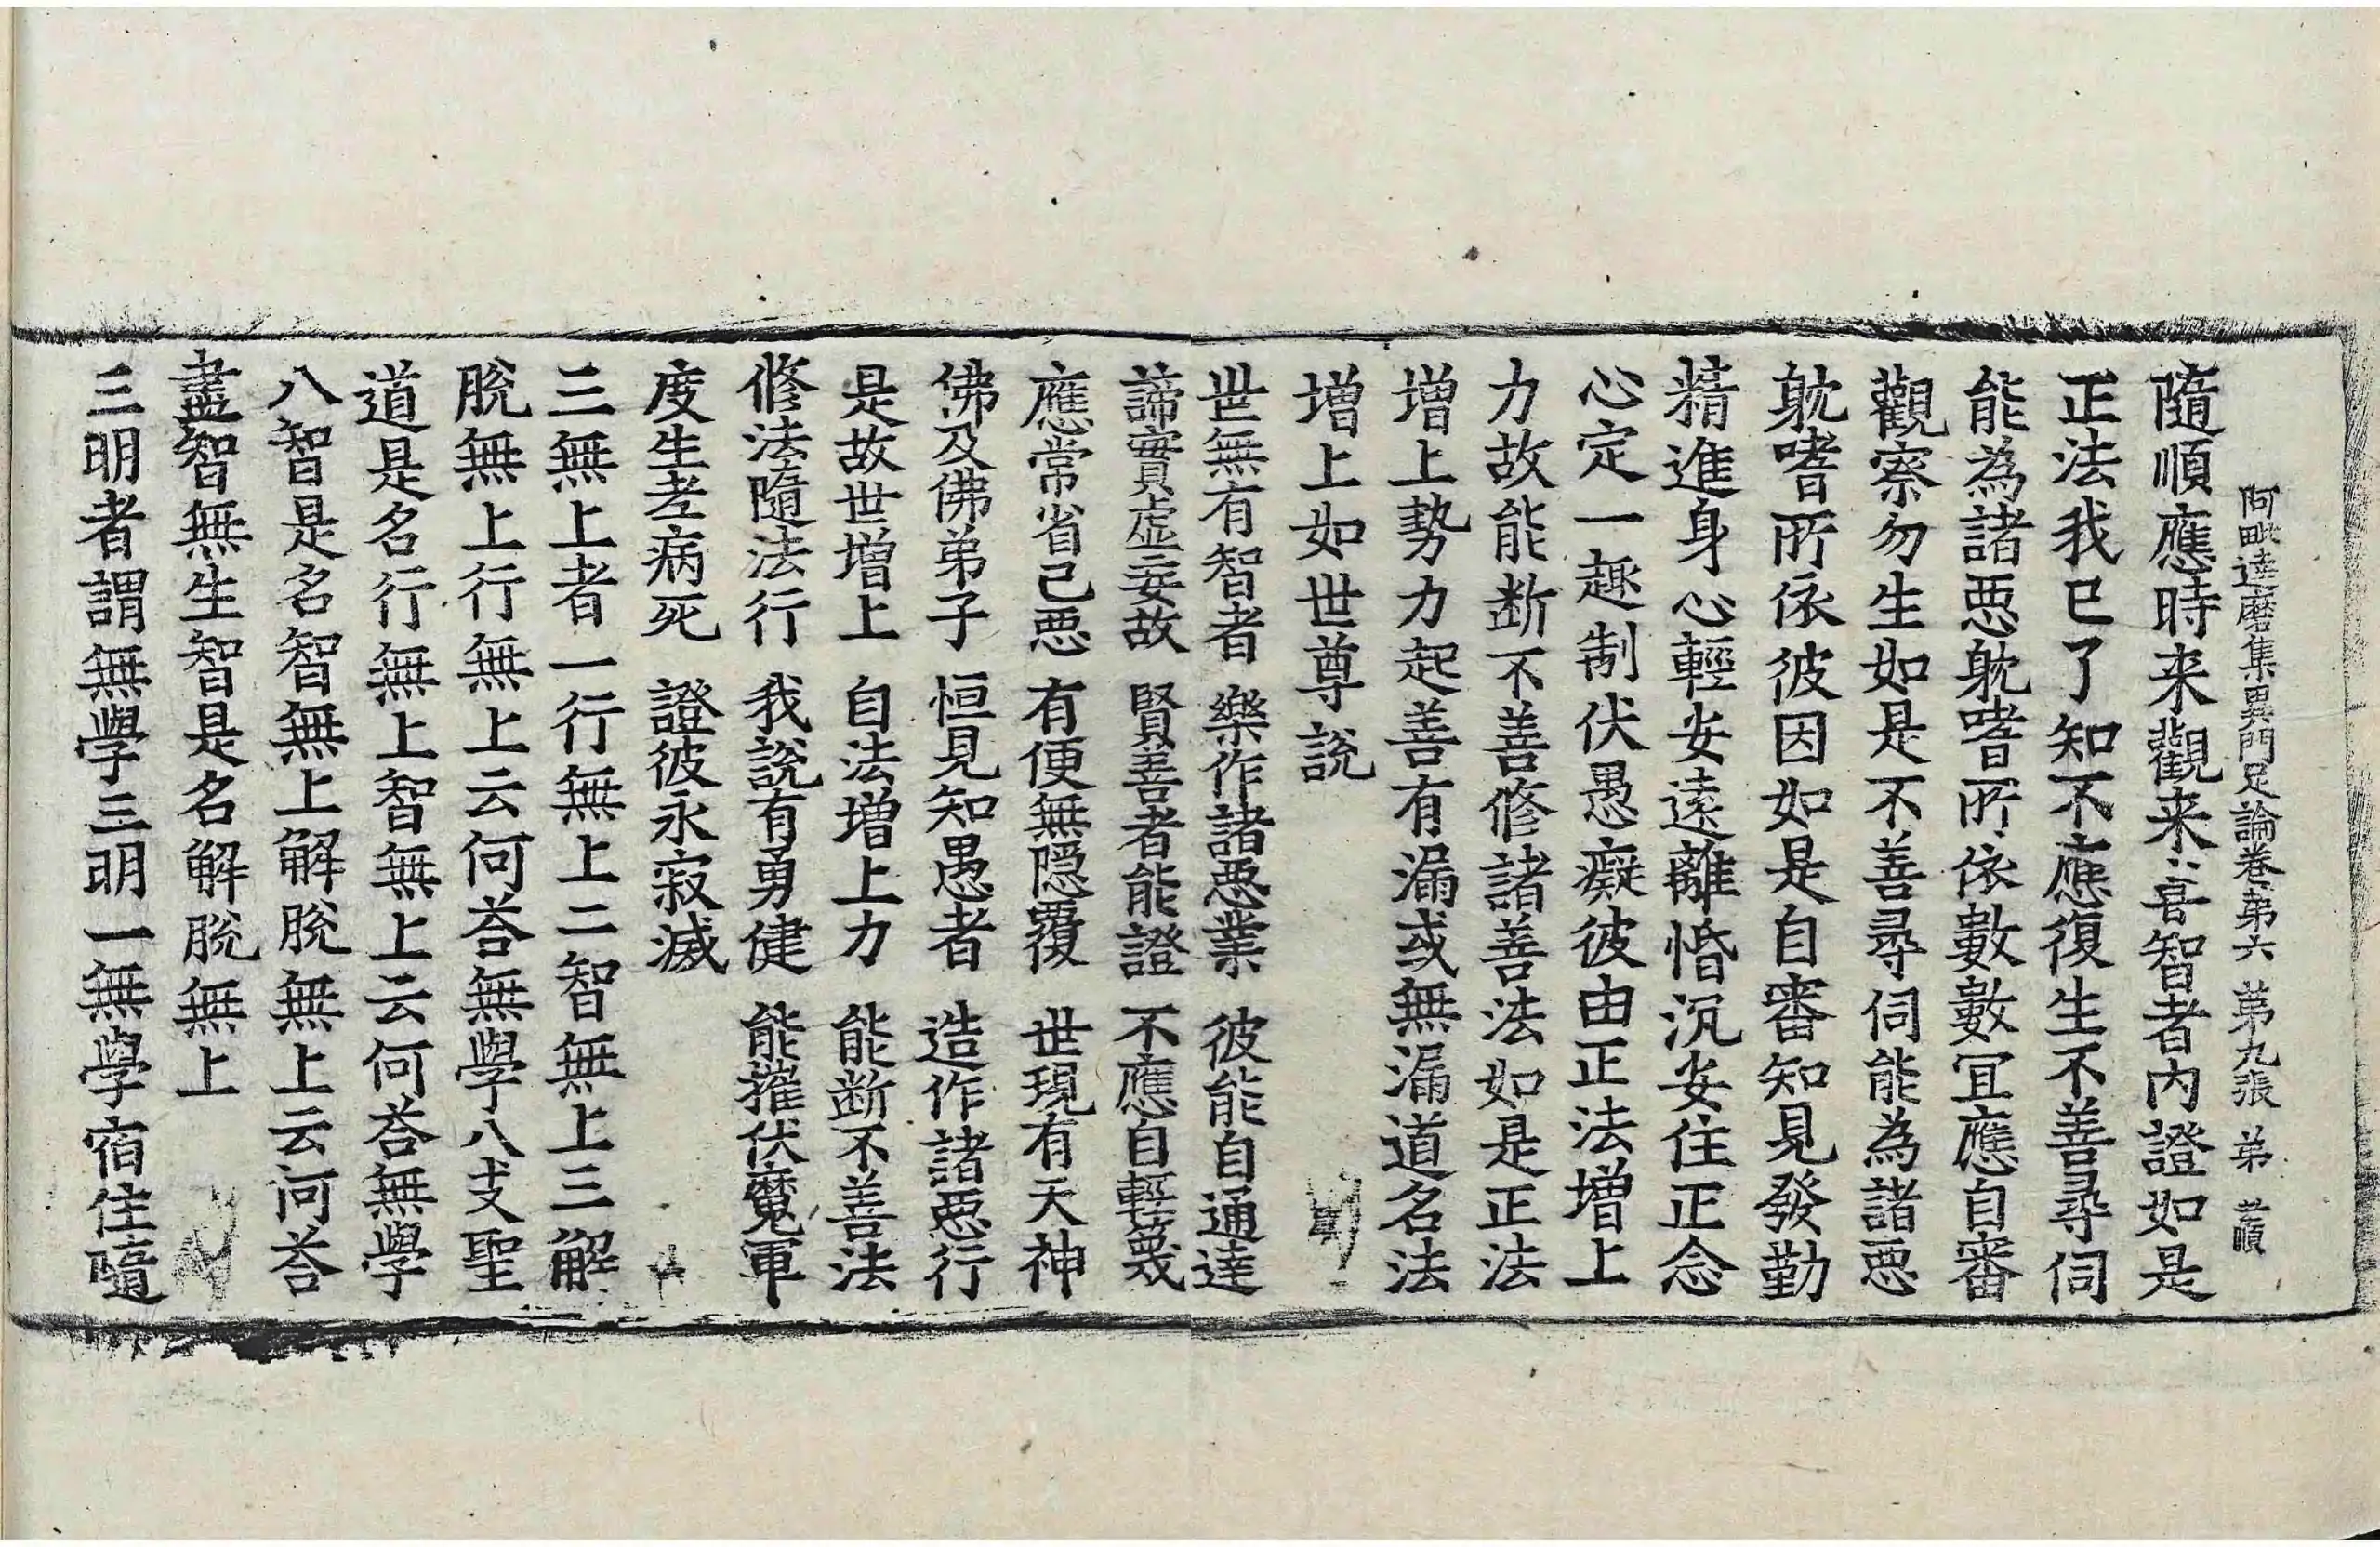 阿毗達磨集異門足論卷第六 第九張 弟
隨順應時来觀来喜智者内證如是
正法我已了知不應復生不善尋伺
能為諸惡躭嗜所依數數冝應自審
觀察勿生如是不善尋伺能為諸惡
躭嗜所依彼因如是自審知見發勤
精進身心輕安遠離惛沉安住正念
心定一趣制伏愚癡彼由正法增上
力故能断不善修諸善法如是正法
增上勢力起善有漏或無漏道名法
增上如世尊說
世無有智者 樂作諸惡業 彼能自通達
諦實虛妄故 賢善者能證 不應自輕蔑
應常省己惡 有便無隱覆 世現有天神
佛及佛弟子 恒見知愚者 造作諸惡行
是故世增上 自法增上力 能断不善法
修法隨法行 我說有勇健 能摧伏魔軍
度生老病死 證彼永寂滅
三無上者一行無上二智無上三解
脫無上行無上云何荅無學八支聖
道是名行無上智無上云何荅無學
八智是名智無上解脫無上云何荅
盡智無生智是名解脫無上
三明者謂無學三明一無學宿住隨